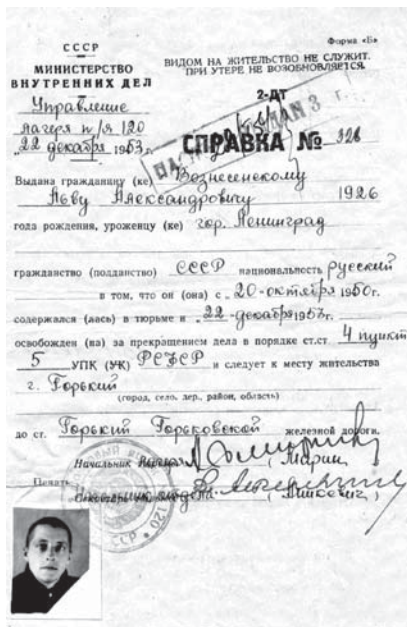 Форма «Б»
СССР
МИНИСТЕРСТВО
ВНУТРЕННИХ ДЕЛ
ВИДОМ НА ЖИТЕЛЬСТВО НЕ СЛУЖИТ.
ПРИ УТЕРЕ НЕ ВОЗОБНОВЛЯЕТСЯ.
Управление
лагеря п/я 120
„22 декабря 1953 г.
2-ДТ
СПРАВКА № 326
Выдана гражданину (ке) Вознесенскому
Льву Александровичу 1926
года рождения, уроженцу (ке) гор. Ленинград
гражданство (подданство) СССР национальность русский
в том, что он (она) с „20-октября 1950г.
содержался (лась) в тюрьме и „22-декабря 1953г.
освобожден (на) за прекращением дела в порядке ст.ст. 4 пункт
5 УПК (УК) РСФСР и следует к месту жительства
г. Горький
(город, село, дер., район, область)
до ст. Горький Горьковской железной дороги.
Начальник (Марин)
Печать